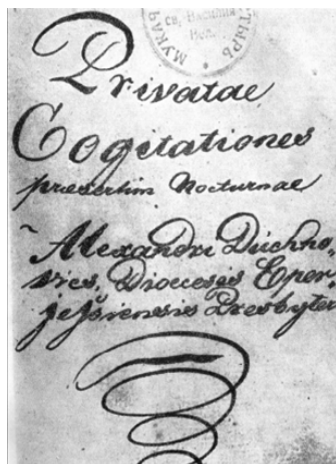 МУКАЧ
СВ. ВАСИЛІЯ
ВЕЛ.
ТЫРЬ
Privatae
Cogitationes
praesertim Nocturnae
Alexandri Duchno„
vics, Dioecesis Eper„
jessiensis Presbyter